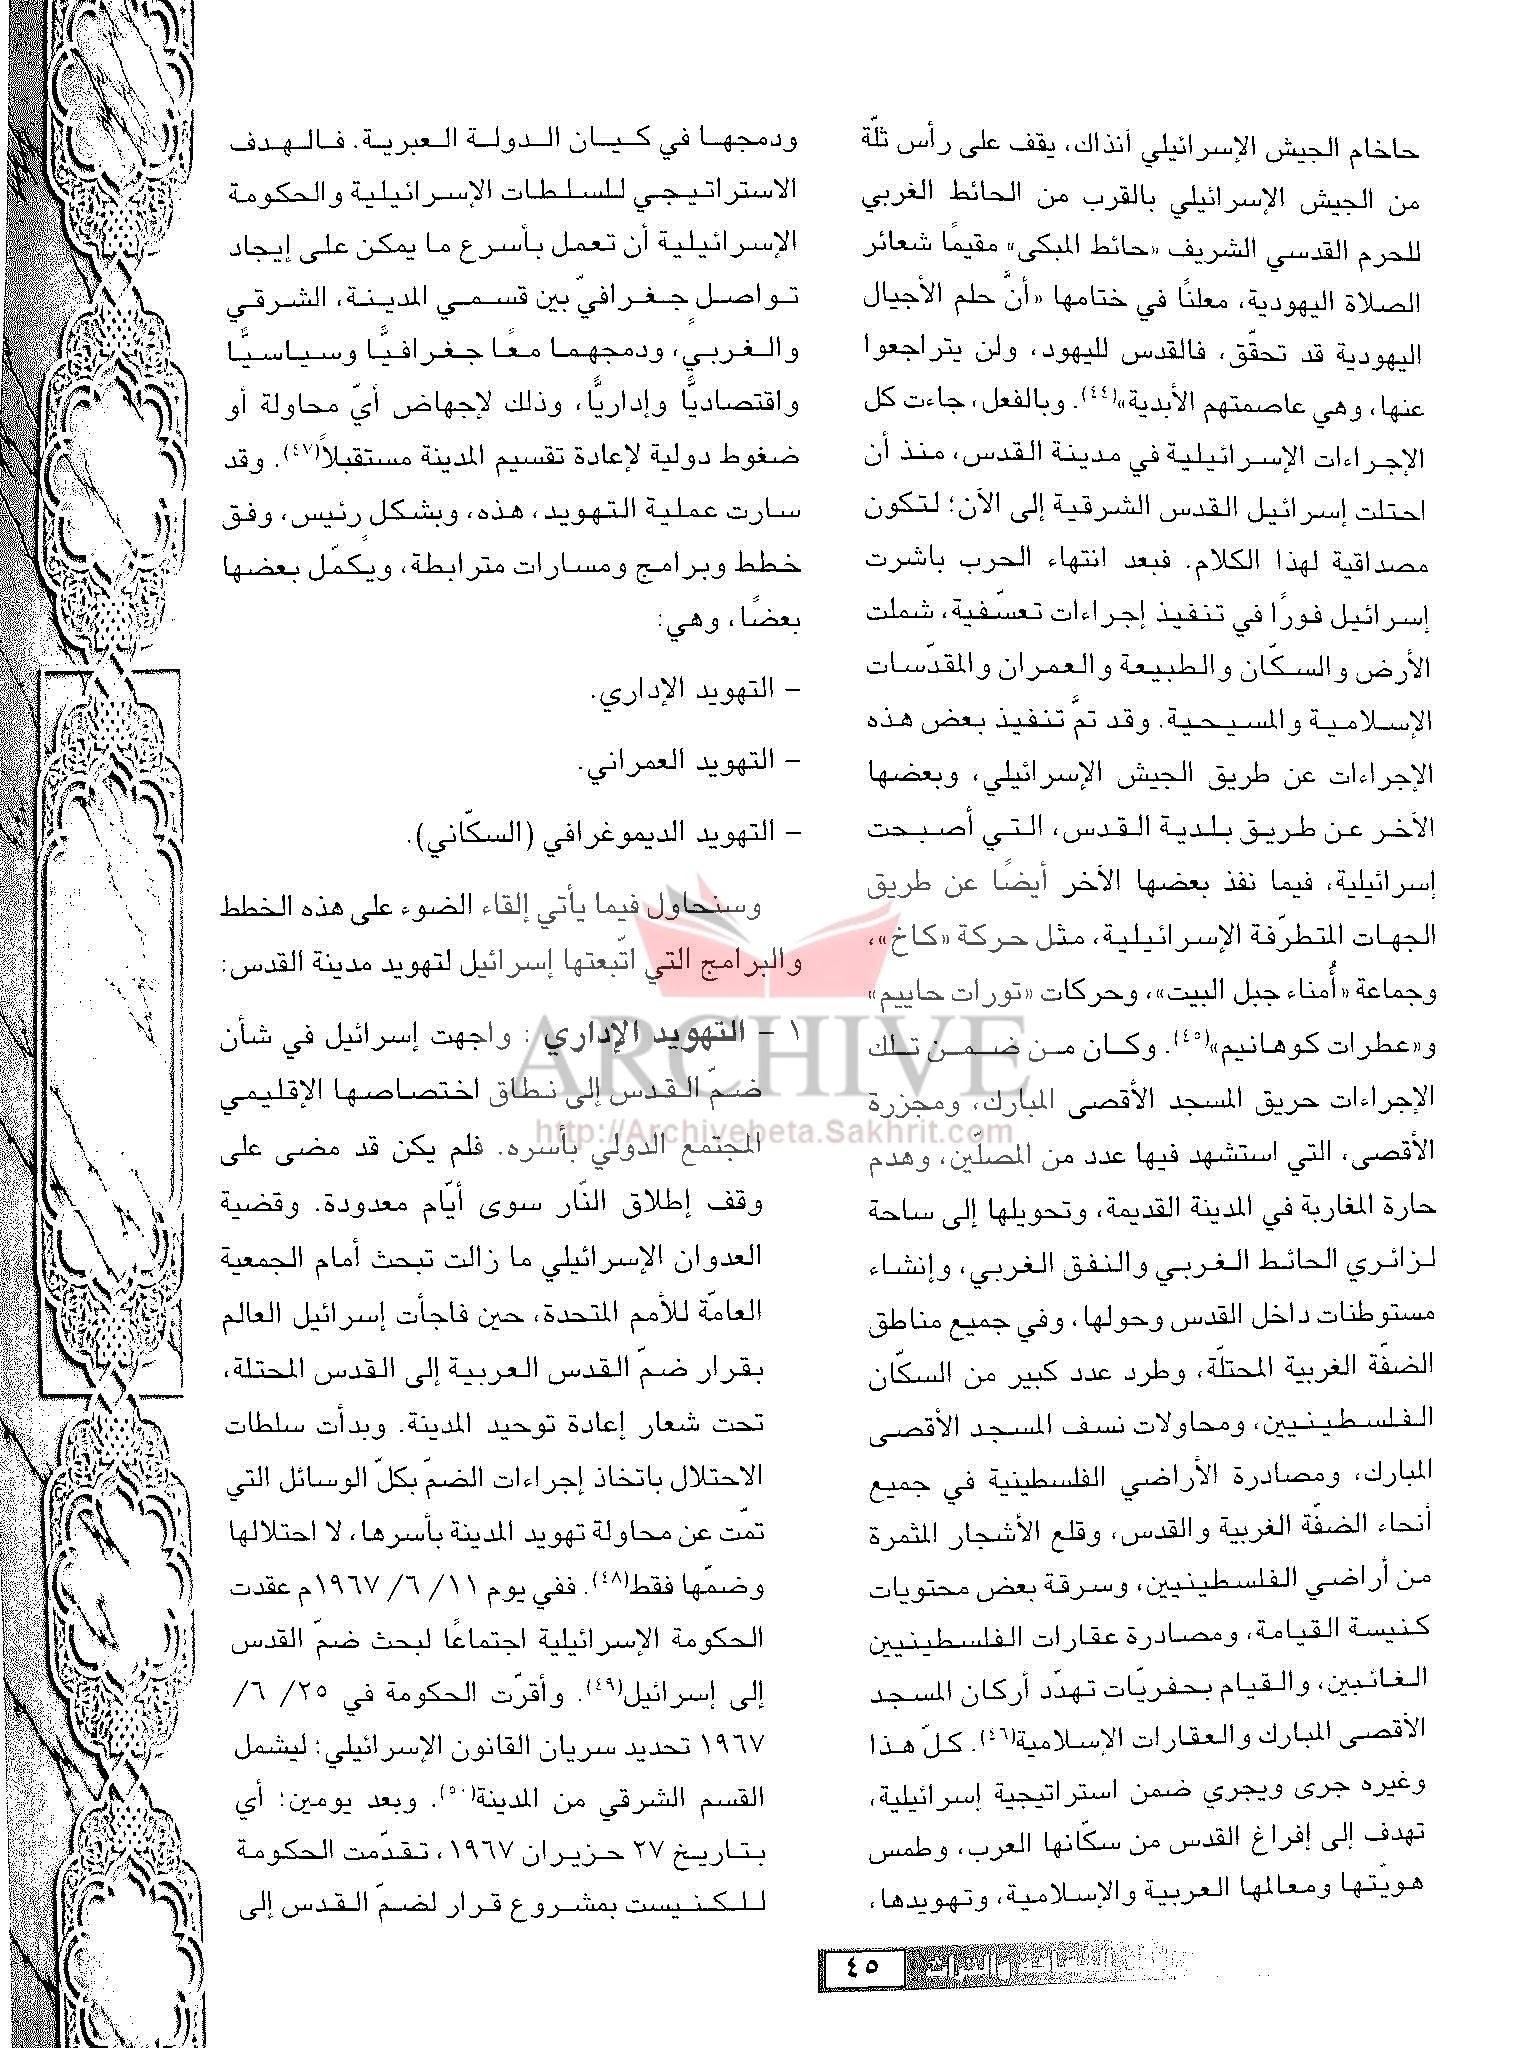 حاخام الجيش الإسرائيلي آنذاك، يقف على رأس ثلّة
من الجيش الإسرائيلي بالقرب من الحائط الغربي
للحرم القدسي الشريف «حائط المبكى» مقيمًا شعائر
الصلاة اليهودية، معلنًا في ختامها «أنَّ حلم الأجيال
اليهودية قد تحقّق، فالقدس لليهود، ولن يتراجعوا
عنها، وهي عاصمتهم الأبدية»(٤٤). وبالفعل، جاءت كل
الإجراءات الإسرائيلية في مدينة القدس، منذ أن
احتلت إسرائيل القدس الشرقية إلى الآن؛ لتكون
مصداقية لهذا الكلام. فبعد انتهاء الحرب باشرت
إسرائيل فورًا في تنفيذ إجراءات تعسّفية، شملت
الأرض والسكّان والطبيعة والعمران والمقدّسات
الإسلامية والمسيحية. وقد تمَّ تنفيذ بعض هذه
الإجراءات عن طريق الجيش الإسرائيلي، وبعضها
الآخر عن طريق بلدية القدس، التي أصبحت
إسرائيلية، فيما نفذ بعضها الآخر أيضًا عن طريق
الجهات المتطرّفة الإسرائيلية، مثل حركة «كاخ»،
وجماعة «أُمناء جبل البيت»، وحركات «تورات حاييم»
و«عطرات كوهانيم»(٤٥). وكان من ضمن تلك
الإجراءات حريق المسجد الأقصى المبارك، ومجزرة
الأقصى، التي استشهد فيها عدد من المصلّين، وهدم
حارة المغاربة في المدينة القديمة، وتحويلها إلى ساحة
لزائري الحائط الغربي والنفق الغربي، وإنشاء
مستوطنات داخل القدس وحولها، وفي جميع مناطق
الضفّة الغربية المحتلّة، وطرد عدد كبير من السكّان
الفلسطينيين، ومحاولات نسف المسجد الأقصى
المبارك، ومصادرة الأراضي الفلسطينية في جميع
أنحاء الضفّة الغربية والقدس، وقلع الأشجار المثمرة
من أراضي الفلسطينيين، وسرقة بعض محتويات
كنيسة القيامة، ومصادرة عقارات الفلسطينيين
الغائبين، والقيام بحفريّات تهدّد أركان المسجد
الأقصى المبارك والعقارات الإسلامية(٤٦). كلّ هذا
وغيره جرى ويجري ضمن استراتيجية إسرائيلية،
تهدف إلى إفراغ القدس من سكّانها العرب، وطمس
هويّتها ومعالمها العربية والإسلامية، وتهويدها،
ودمجها في كيان الدولة العبرية. فالهدف
الاستراتيجي للسلطات الإسرائيلية والحكومة
الإسرائيلية أن تعمل بأسرع ما يمكن على إيجاد
تواصلٍ جغرافيّ بين قسمي المدينة، الشرقي
والغربي، ودمجهما معًا جغرافيًّا وسياسيًّا
واقتصاديًّا وإداريًّا، وذلك لإجهاض أيّ محاولة أو
ضغوط دولية لإعادة تقسيم المدينة مستقبلاً(٤٧). وقد
سارت عملية التهويد، هذه، وبشكلٍ رئيس، وفق
خطط وبرامج ومسارات مترابطة، ويكمّل بعضها
بعضًا، وهي:
– التهويد الإداري.
– التهويد العمراني.
– التهويد الديموغرافي (السكّاني).
وسنحاول فيما يأتي إلقاء الضوء على هذه الخطط
والبرامج التي اتّبعتها إسرائيل لتهويد مدينة القدس:
١ – التهويد الإداري : واجهت إسرائيل في شأن
ضمّ القدس إلى نطاق اختصاصها الإقليمي
المجتمع الدولي بأسره. فلم يكن قد مضى على
وقف إطلاق النّار سوى أيّام معدودة. وقضية
العدوان الإسرائيلي ما زالت تبحث أمام الجمعية
العامّة للأمم المتحدة، حين فاجأت إسرائيل العالم
بقرار ضمّ القدس العربية إلى القدس المحتلة،
تحت شعار إعادة توحيد المدينة. وبدأت سلطات
الاحتلال باتخاذ إجراءات الضمّ بكلّ الوسائل التي
تمّت عن محاولة تهويد المدينة بأسرها، لا احتلالها
وضمّها فقط(٤٨). ففي يوم ١١/ ٦/ ١٩٦٧م عقدت
الحكومة الإسرائيلية اجتماعًا لبحث ضمّ القدس
إلى إسرائيل(٤٩). وأقرّت الحكومة في ٢٥/ ٦/
١٩٦٧ تحديد سريان القانون الإسرائيلي؛ ليشمل
القسم الشرقي من المدينة(٥٠). وبعد يومين؛ أي
بتاريخ ٢٧ حزيران ١٩٦٧، تقدّمت الحكومة
للكنيست بمشروع قرار لضمّ القدس إلى
ARCHIVE
http://Archivebeta.Sakhrit.com
٤٥
الثقافة والتراث